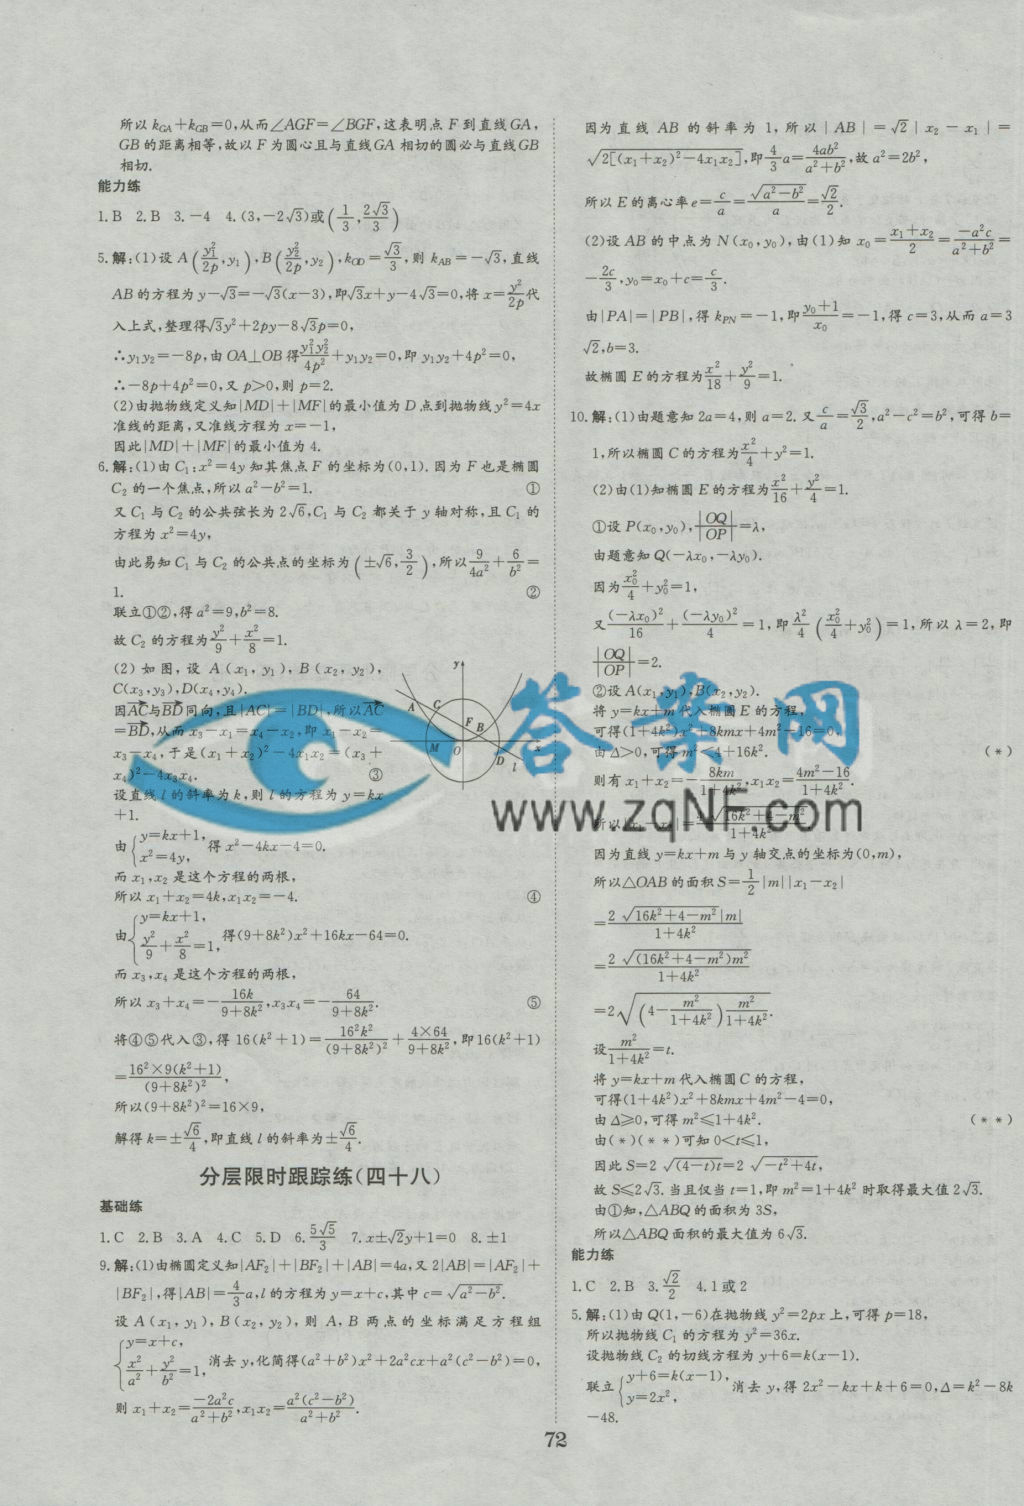 所以 k_GA+k_GB=0,从而∠AGF=∠BGF,这表明点 F 到直线GA,
GB 的距离相等,故以 F 为圆心且与直线GA 相切的圆必与直线GB
相切.
能力练
1.B 2.B 3.-4 4.(3,-2√3)或(1/3,2√3/3)
5.解:(1)设 A(y₁²/2p,y₁),B(y₂²/2p,y₂),k_OD=√3/3,则 k_AB=-√3,直线
AB 的方程为 y-√3=-√3(x-3),即√3x+y-4√3=0,将 x=y²/2p代
入上式,整理得√3y²+2py-8√3p=0,
∴y₁y₂=-8p,由 OA⊥OB 得y₁²y₂²/4p²+y₁y₂=0,即 y₁y₂+4p²=0,
∴-8p+4p²=0,又 p>0,则 p=2.
(2)由抛物线定义知|MD|+|MF|的最小值为 D 点到抛物线 y²=4x
准线的距离,又准线方程为 x=-1,
因此|MD|+|MF|的最小值为 4.
6.解:(1)由 C₁:x²=4y 知其焦点 F 的坐标为(0,1).因为 F 也是椭圆
C₂ 的一个焦点,所以 a²-b²=1. ①
又 C₁ 与 C₂ 的公共弦长为 2√6,C₁ 与 C₂ 都关于 y 轴对称,且 C₁ 的
方程为 x²=4y,
由此易知 C₁ 与 C₂ 的公共点的坐标为(±√6,3/2),所以9/4a²+6/b²=
1. ②
联立①②,得 a²=9,b²=8.
故 C₂ 的方程为y²/9+x²/8=1.
(2) 如图,设 A(x₁,y₁),B(x₂,y₂),
C(x₃,y₃),D(x₄,y₄).
因AC与BD同向,且|AC|=|BD|,所以AC
=BD,从而 x₃-x₁=x₄-x₂,即 x₁-x₂=
x₃-x₄,于是(x₁+x₂)²-4x₁x₂=(x₃+
x₄)²-4x₃x₄. ③
设直线 l 的斜率为 k,则 l 的方程为 y=kx
+1.
由{y=kx+1, x²=4y, 得 x²-4kx-4=0.
而 x₁,x₂ 是这个方程的两根,
所以 x₁+x₂=4k,x₁x₂=-4. ④
由{y=kx+1, y²/9+x²/8=1, 得(9+8k²)x²+16kx-64=0.
而 x₃,x₄ 是这个方程的两根,
所以 x₃+x₄=-16k/(9+8k²),x₃x₄=-64/(9+8k²). ⑤
将④⑤代入③,得 16(k²+1)=16²k²/(9+8k²)²+4×64/(9+8k²),即16(k²+1)
=16²×9(k²+1)/(9+8k²)²,
所以(9+8k²)²=16×9,
解得 k=±√6/4,即直线 l 的斜率为±√6/4.
y
A C F B
M O D x
l
分层限时跟踪练(四十八)
基础练
1.C 2.B 3.A 4.C 5.D 6.5√5/3 7.x±√2y+1=0 8.±1
9.解:(1)由椭圆定义知|AF₂|+|BF₂|+|AB|=4a,又 2|AB|=|AF₂|+
|BF₂|,得|AB|=4/3a,l 的方程为 y=x+c,其中 c=√(a²-b²).
设 A(x₁,y₁),B(x₂,y₂),则 A,B 两点的坐标满足方程组
{y=x+c, x²/a²+y²/b²=1, 消去 y,化简得(a²+b²)x²+2a²cx+a²(c²-b²)=0,
则 x₁+x₂=-2a²c/(a²+b²),x₁x₂=a²(c²-b²)/(a²+b²).
因为直线 AB 的斜率为 1,所以|AB|=√2|x₂-x₁|=
√(2[(x₁+x₂)²-4x₁x₂]),即4/3a=4ab²/(a²+b²),故 a²=2b²,
所以 E 的离心率 e=c/a=√(a²-b²)/a=√2/2.
(2)设 AB 的中点为 N(x₀,y₀),由(1)知 x₀=(x₁+x₂)/2=-a²c/(a²+b²)=
-2c/3,y₀=x₀+c=c/3.
由|PA|=|PB|,得 k_PN=-1,即(y₀+1)/x₀=-1,得 c=3,从而 a=3
√2,b=3.
故椭圆 E 的方程为x²/18+y²/9=1.
10.解:(1)由题意知 2a=4,则 a=2.又c/a=√3/2,a²-c²=b²,可得 b=
1,所以椭圆 C 的方程为x²/4+y²=1.
(2)由(1)知椭圆 E 的方程为x²/16+y²/4=1.
①设 P(x₀,y₀),|OQ|/|OP|=λ,
由题意知 Q(-λx₀,-λy₀).
因为x₀²/4+y₀²=1,
又(-λx₀)²/16+(-λy₀)²/4=1,即λ²/4(x₀²/4+y₀²)=1,所以 λ=2,即
|OQ|/|OP|=2.
②设 A(x₁,y₁),B(x₂,y₂).
将 y=kx+m 代入椭圆 E 的方程,
可得(1+4k²)x²+8kmx+4m²-16=0,
由 Δ>0,可得 m²<4+16k². (*)
则有 x₁+x₂=-8km/(1+4k²),x₁x₂=(4m²-16)/(1+4k²).
所以|x₁-x₂|=4√(16k²+4-m²)/(1+4k²).
因为直线 y=kx+m 与 y 轴交点的坐标为(0,m),
所以△OAB 的面积 S=1/2|m||x₁-x₂|
=2√(16k²+4-m²)|m|/(1+4k²)
=2√((16k²+4-m²)m²)/(1+4k²)
=2√((4-m²/(1+4k²))m²/(1+4k²)).
设m²/(1+4k²)=t.
将 y=kx+m 代入椭圆 C 的方程,
可得(1+4k²)x²+8kmx+4m²-4=0,
由 Δ≥0,可得 m²≤1+4k². (**)
由(*)(**)可知 0<t≤1,
因此 S=2√((4-t)t)=2√(-t²+4t),
故 S≤2√3.当且仅当 t=1,即 m²=1+4k² 时取得最大值 2√3.
由①知,△ABQ 的面积为 3S,
所以△ABQ 面积的最大值为 6√3.
能力练
1.C 2.B 3.√2/2 4.1 或 2
5.解:(1)由 Q(1,-6)在抛物线 y²=2px 上,可得 p=18,
所以抛物线 C₁ 的方程为 y²=36x.
设抛物线 C₂ 的切线方程为 y+6=k(x-1).
联立{y+6=k(x-1), y=2x², 消去 y,得 2x²-kx+k+6=0,Δ=k²-8k
-48.
72
答案网
www.zqNF.com